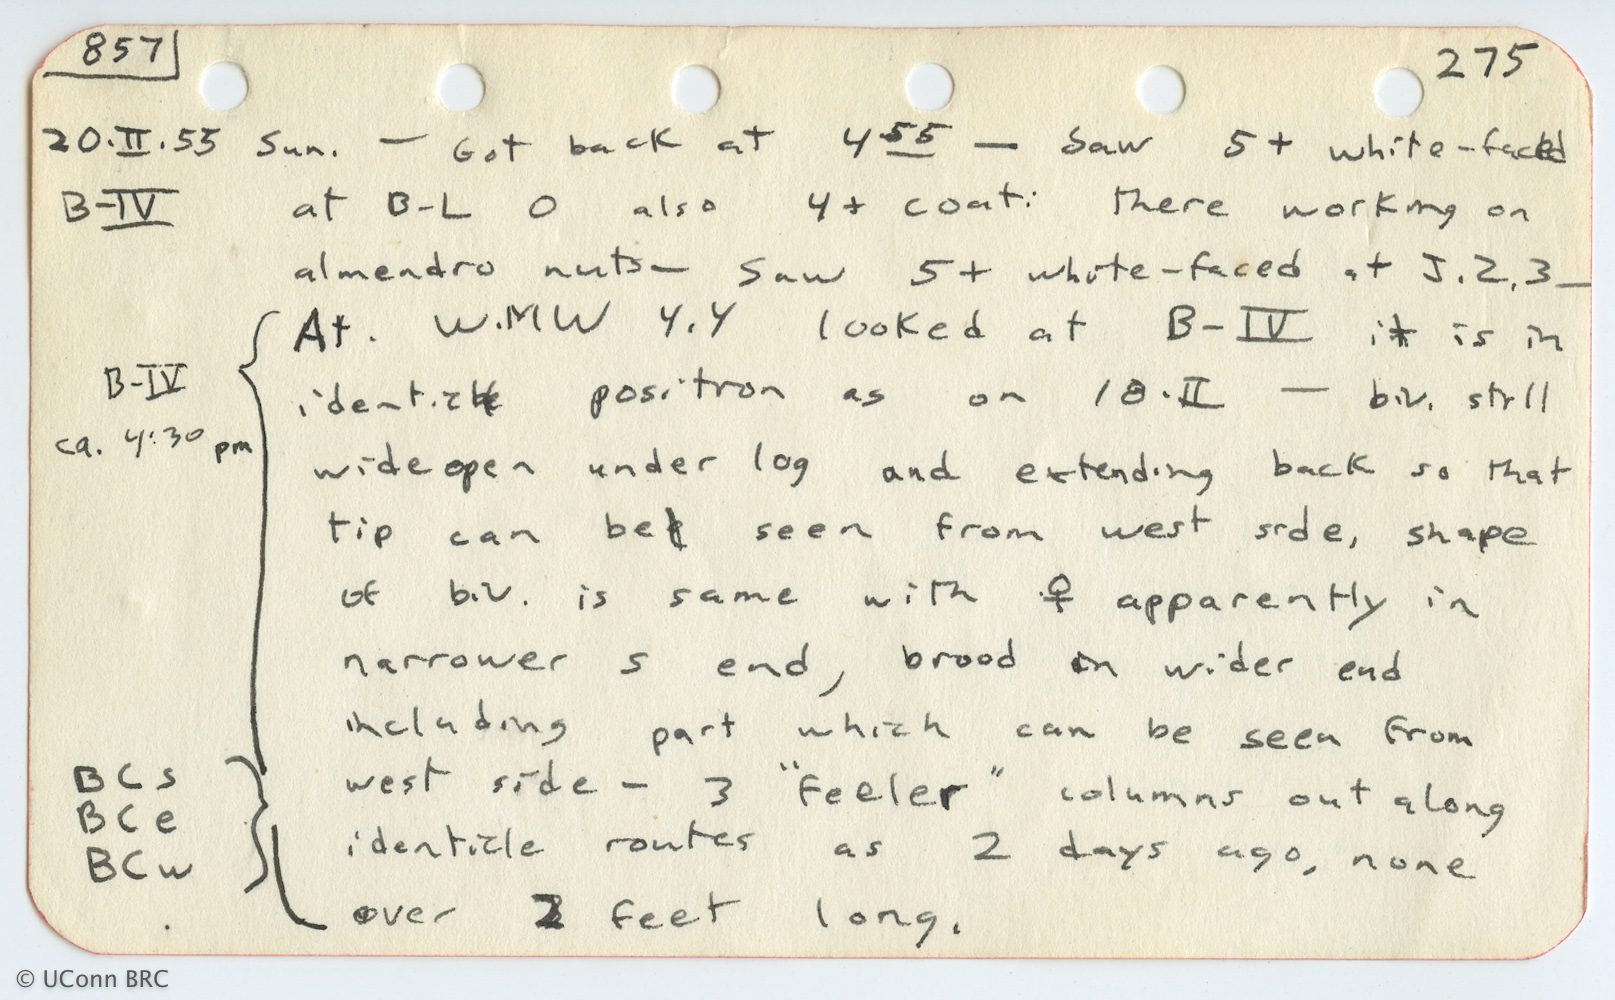 857
275
20.II.55 Sun. — Got back at 4 55 — Saw 5+ white-faced
B-IV at B-L 0 also 4+ coati there working on
almendro nuts — Saw 5+ white-faced at J.2.3 —
At. W.MW 4.4 looked at B-IV it is in
B-IV identicle position as on 18.II — biv. still
ca. 4:30 pm wide open under log and extending back so that
tip can be seen from west side, shape
of biv. is same with ♀ apparently in
narrower S end, brood in wider end
including part which can be seen from
BCs west side — 3 "feeler" columns out along
BCe identicle routes as 2 days ago, none
BCw over 2 feet long.
© UConn BRC